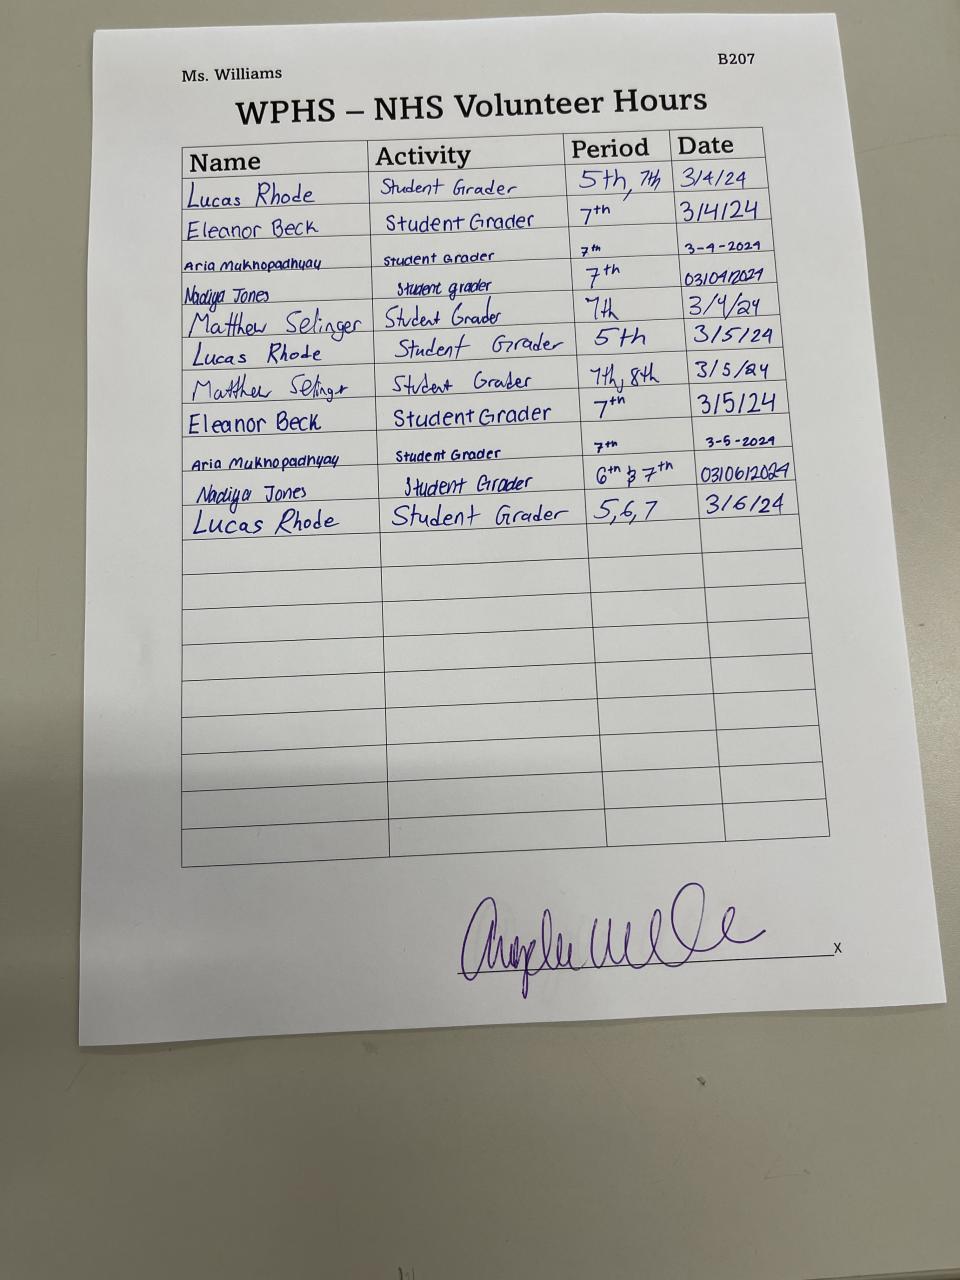 Ms. Williams B207
WPHS – NHS Volunteer Hours
Name Activity Period Date
Lucas Rhode Student Grader 5th, 7th 3/4/24
Eleanor Beck Student Grader 7th 3/4/24
Aria Muknopadhyay Student Grader 7th 3-4-2024
Nadiya Jones Student grader 7th 03/04/2024
Matthew Selinger Student Grader 7th 3/4/24
Lucas Rhode Student Grader 5th 3/5/24
Matthew Selinger Student Grader 7th, 8th 3/5/24
Eleanor Beck Student Grader 7th 3/5/24
Aria Muknopadhyay Student Grader 7th 3-5-2024
Nadiya Jones Student Grader 6th & 7th 03/06/2024
Lucas Rhode Student Grader 5,6,7 3/6/24
x